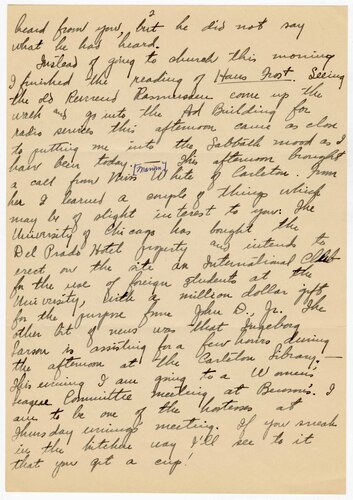 2
heard from you, but he did not say
what he has heard.
Instead of going to church this morning
I finished the reading of Hans Frost. Seeing
the old Reverend Rasmussen come up the
week and go into the Ad Building for
radio services this afternoon came as close
to putting me into the Sabbath mood as I
have been today. This afternoon brought
a call from Miss White of Carleton. From
her I learned a couple of things which
may be of slight interest to you. The
University of Chicago has bought the
Del Prado Hotel property and intends to
erect on the site an International Club
for the use of foreign students at the
University, with a million dollar gift
for the purpose from John D., Jr. The
other bit of news was that Ingeborg
Larson is assisting for a few hours during
the afternoon at the Carleton Library. —
This evening I am going to a Women's
League Committee meeting at Benson's. I
am to be one of the hostesses at
Thursday evening's meeting. If you sneak
in the kitchen way I'll see to it
that you get a cup!